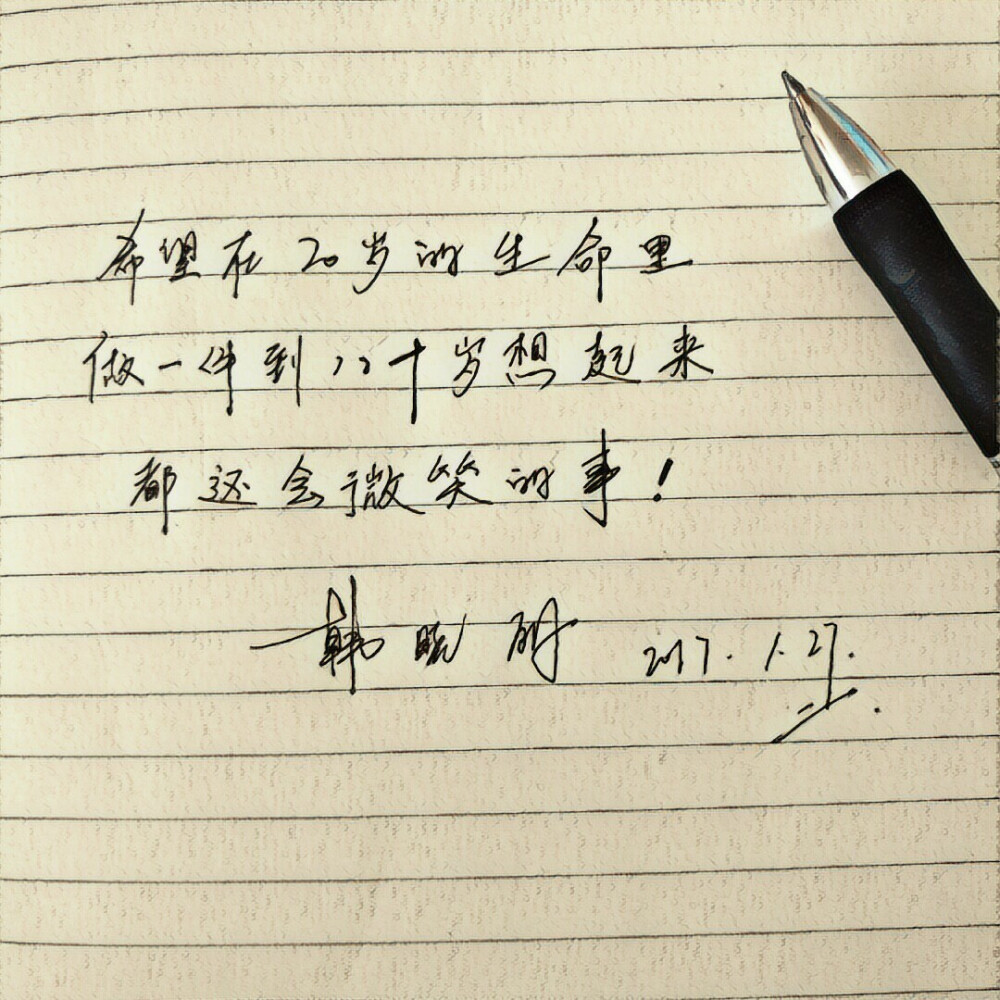 希望在20岁的生命里
做一件到八十岁想起来
都还会微笑的事!
韩晓 2017.1.27.